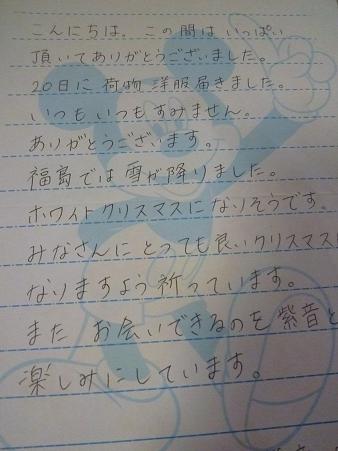 こんにちは。この間はいっぱい
頂いてありがとうございました。
20日に荷物 洋服届きました。
いつもいつもすみません。
ありがとうございます。
福島では雪が降りました。
ホワイトクリスマスになりそうです。
みなさんにとっても良いクリスマスに
なりますよう祈っています。
また お会いできるのを 紫音と
楽しみにしています。